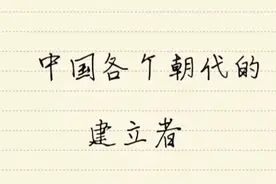 中国各个朝代的
建立者